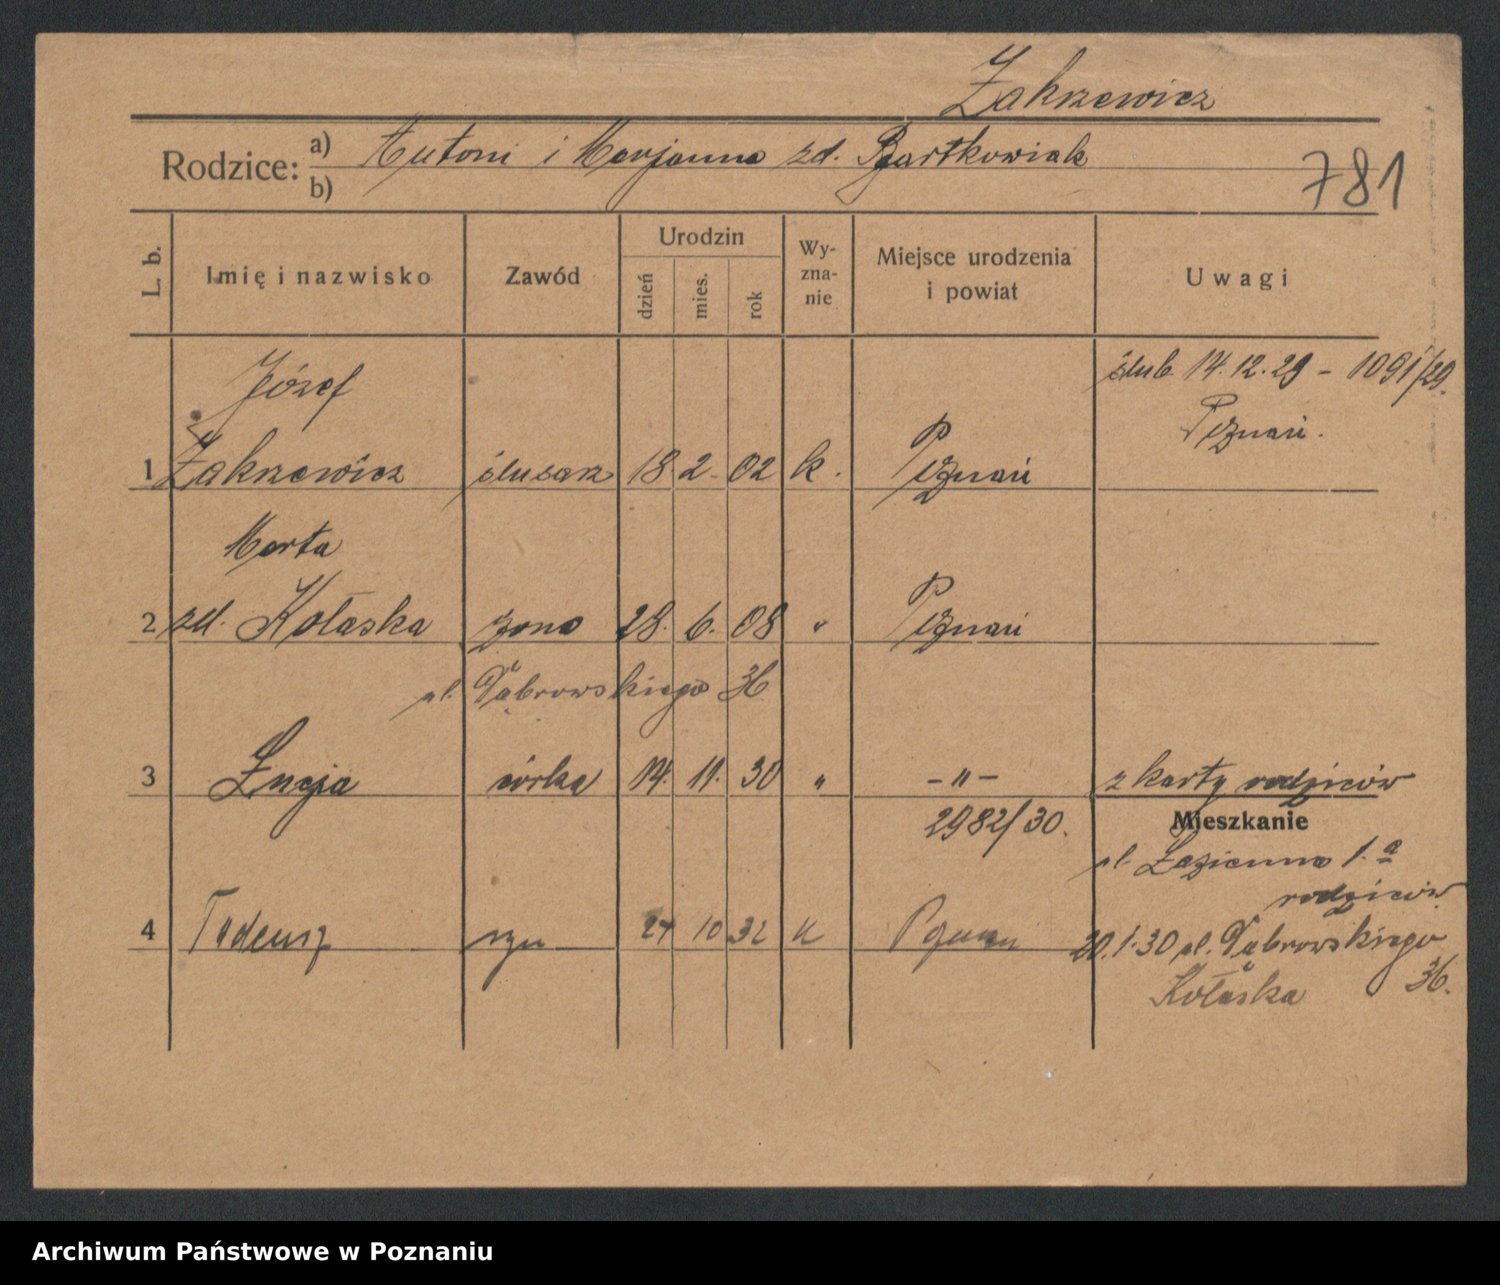 Zakrzewicz
Rodzice: a) Antoni i Marjanna zd. Bartkowiak
b)
781
L. b. Imię i nazwisko Zawód Urodzin dzień mies. rok Wy-zna-nie Miejsce urodzenia i powiat Uwagi
Józef ślub. 14.12.29 - 1091/29.
Poznań.
1 Zakrzewicz ślusarz 18. 2. 02 k. Poznań
Marta
2 zd. Kołaska żona 28. 6. 08 " Poznań
ul. Dąbrowskiego 36
3 Łucja córka 14. 11. 30 " -"- z karty rodziców
2982/30. Mieszkanie
ul. Łazienna 1.a
rodziców
4 Tadeusz syn 24 10 32 k Poznań 20.1.30 ul. Dąbrowskiego
Kołaska 36.
Archiwum Państwowe w Poznaniu